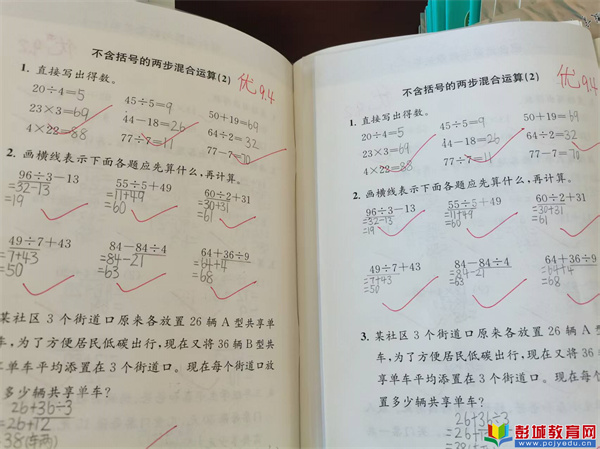 优 9.2
不含括号的两步混合运算(2)
优 9.4
1. 直接写出得数。
20÷4=5 45÷5=9 50+19=69
23×3=69 44-18=26 64÷2=32
4×22=88 77÷7=11 77-7=70
2. 画横线表示下面各题应先算什么,再计算。
96÷3-13 55÷5+49 60÷2+31
=32-13 =11+49 =30+31
=19 =60 =61
49÷7+43 84-84÷4 64+36÷9
=7+43 =84-21 =64+4
=50 =63 =68
某社区 3 个街道口原来各放置 26 辆 A 型共享单
车,为了方便居民低碳出行,现在又将 36 辆 B 型共
享单车平均添置在 3 个街道口。现在每个街道口放
多少辆共享单车?
26+36÷3
=26+12
=38(车两)
不含括号的两步混合运算(2)
优 9.4
1. 直接写出得数。
20÷4=5 45÷5=9 50+19=69
23×3=69 44-18=26 64÷2=32
4×22=88 77÷7=11 77-7=70
2. 画横线表示下面各题应先算什么,再计算。
96÷3-13 55÷5+49 60÷2+31
=32-13 =11+49 =30+31
=19 =60 =61
49÷7+43 84-84÷4 64+36÷9
=7+43 =84-21 =64+4
=50 =63 =68
3. 某社区 3 个街道口原来各放置 26 辆 A
车,为了方便居民低碳出行,现在又将 36
享单车平均添置在 3 个街道口。现在每个
置多少辆共享单车?
26+36÷3
=26+12
彭城教育网
www.pcjyedu.cn